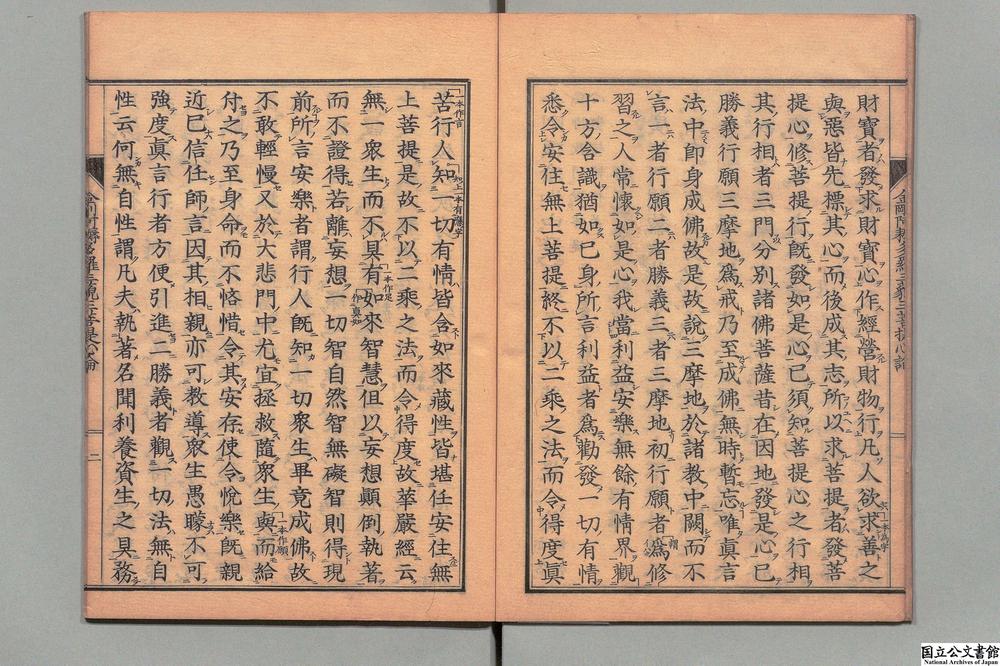 財寶者發求財寶心作經營財物行凡人欲求善之
與惡皆先標其心而後成其志所以求菩提者發菩
提心修菩提行既發如是心已須知菩提心之行相
其行相者三門分別諸佛菩薩昔在因地發是心已
勝義行願三摩地為戒乃至成佛無時暫忘唯真言
法中即身成佛故是故說三摩地於諸教中闕而不
言一者行願二者勝義三者三摩地初行願者為修
習之人常懷如是心我當利益安樂無餘有情界觀
十方含識猶如己身所言利益者為勸發一切有情
悉令安住無上菩提終不以二乘之法而令得度眞
苦行人知一切有情皆含如來藏性皆堪任安住無
上菩提是故不以二乘之法而令得度故華嚴經云
無一衆生而不具有如來智慧但以妄想顛倒執著
而不證得若離妄想一切智自然智無礙智則得現
前所言安樂者謂行人既知一切衆生畢竟成佛故
不敢輕慢又於大悲門中尤宜拯救隨衆生與而給
付之乃至身命而不悋惜令其安存使令悅樂既親
近已信任師言因其相親亦可教導衆生愚矇不可
強度眞言行者方便引進二勝義者觀一切法無自
性云何無自性謂凡夫執著名聞利養資生之具務
二
国立公文書館
National Archives of Japan